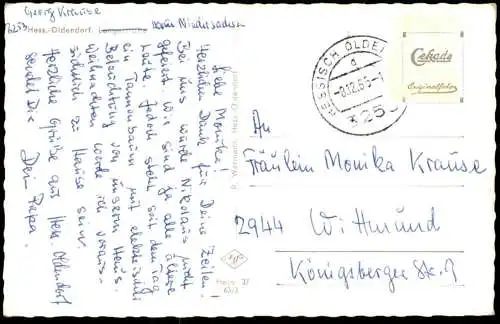 Georg Krause
3253 Hess.-Oldendorf
Liebe Monika!
Herzlichen Dank für Deine Zeilen!
Bei uns würde Nikolaus nicht
gefeiert. Wir sind ja alle ältere
Leute. Jedoch steht seit dem Tag
ein Tannenbaum mit elektrischer
Beleuchtung vor unserm Haus.
Weihnachten werde ich voraus-
sichtlich zu Hause sein.
Herzliche Grüße aus Hess. Oldendorf
sendet Dir
Dein Papa.
Hess.-Oldendorf
HESSISCH OLDEN
a
-8.12.65-1
325
Cekade
Originalfoto
An
Fräulein Monika Krause
2944 Wittmund
Königsberger Str. 9
Agfa
Hess 37